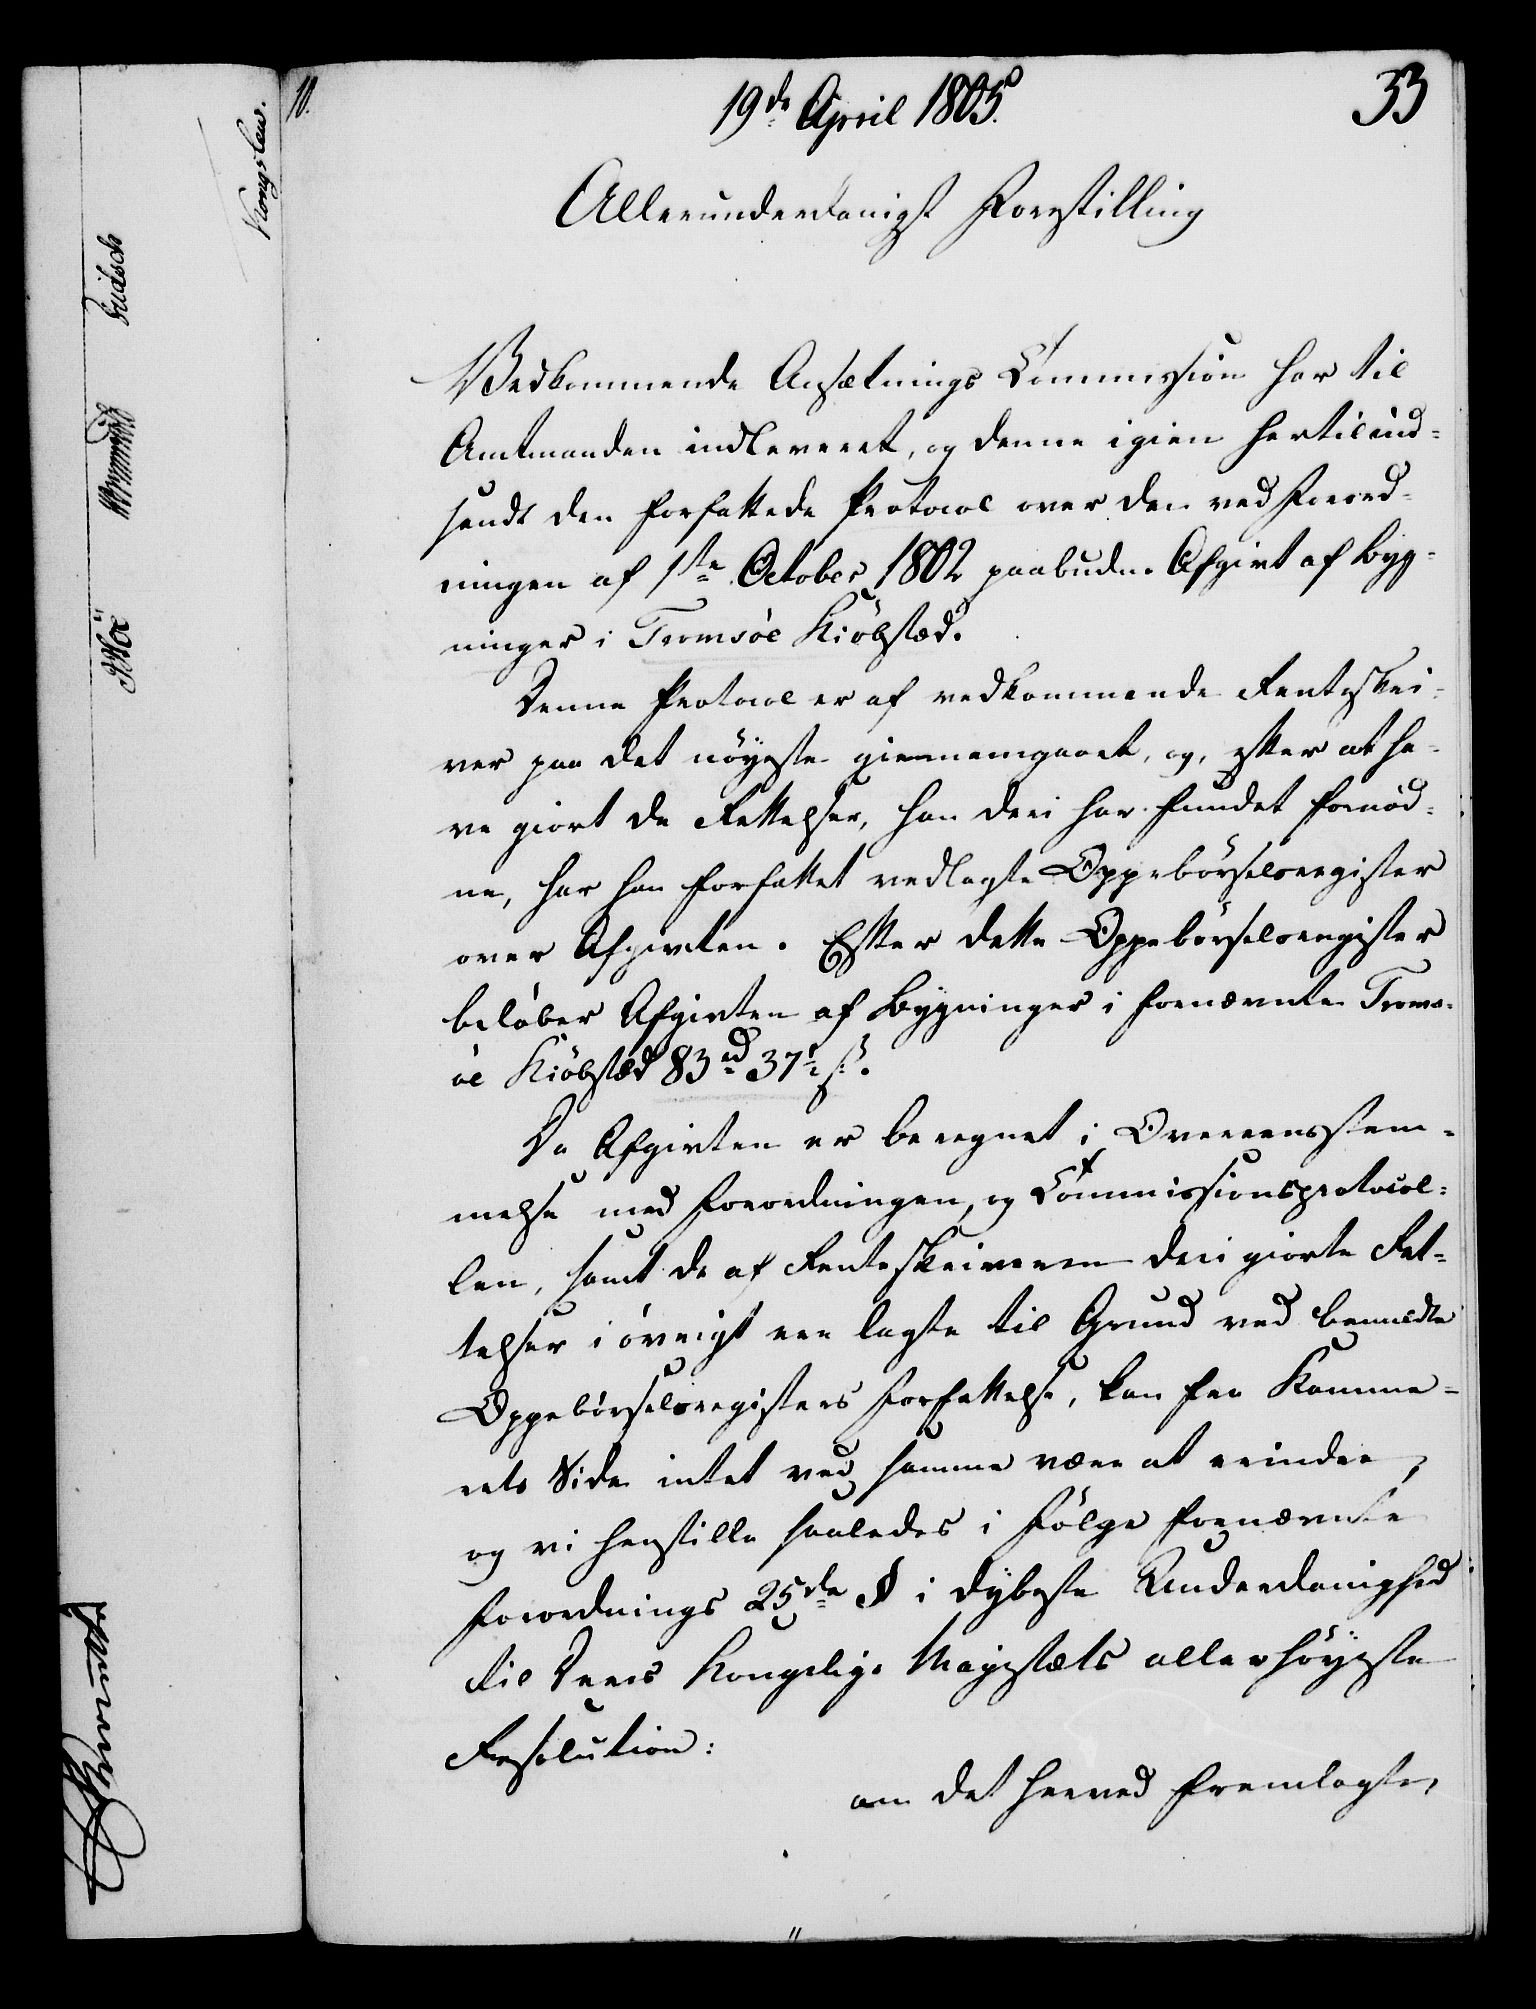 10.
19de April 1805.
33
Allerunderdanigst Forestilling
Vedkommende Ansætnings Commission har til
Amtmanden indleveret, og denne igien hertil ind-
sendt den forfattede Protocol over den ved Forord-
ningen af 1ste October 1802 paabudne Afgivt af Byg-
ninger i Tromsöe Kiöbstæd.
Denne Protocol er af vedkommende Renteskri-
ver paa det nöyeste giennemgaaet, og, efter at ha-
ve giort de Rettelser, han deri har fundet fornöd-
ne, har han forfattet vedlagte Oppebörselsregister
over Afgivten. Efter dette Oppebörselsregister
belöber Afgivten af Bygninger i fornævnte Troms-
öe Kiöbstæd 83 rd 37 1/2 s.
Da Afgivten er beregnet i Overeensstem-
melse med Forordningen, og Commissionsprotocol-
len, samt de af Renteskriveren deri giorte Ret-
telser i övrigt ere lagte til Grund ved bemeldte
Oppebörselsregisters Forfattelse, kan fra Kamme-
rets Side intet ved samme være at erindre,
og vi henstille saaledes i Fölge fornævnte
Forordnings 25de § i dybeste Underdanighed
til Deres Kongelige Majestæts allerhöyeste
Resolution:
om det herved fremlagte